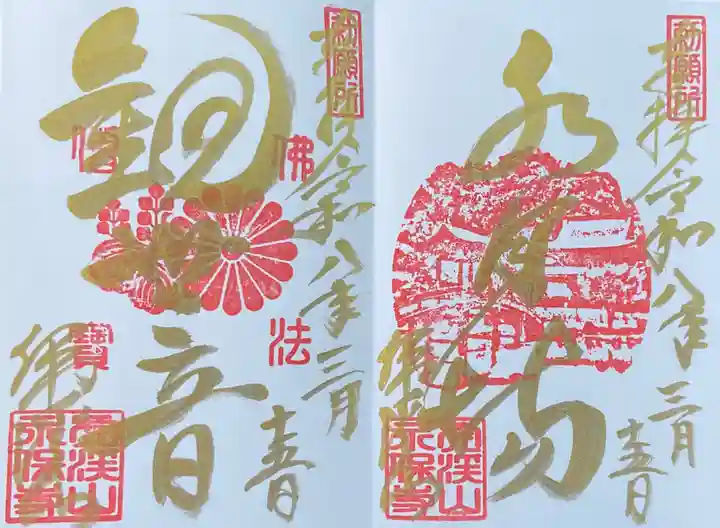 勅願所
奉拝 令和八年三月十五日
水月場
虎渓山
永保寺
勅願所
奉拝 令和八年三月十五日
佛法
僧寶
観世音
虎渓山
永保寺